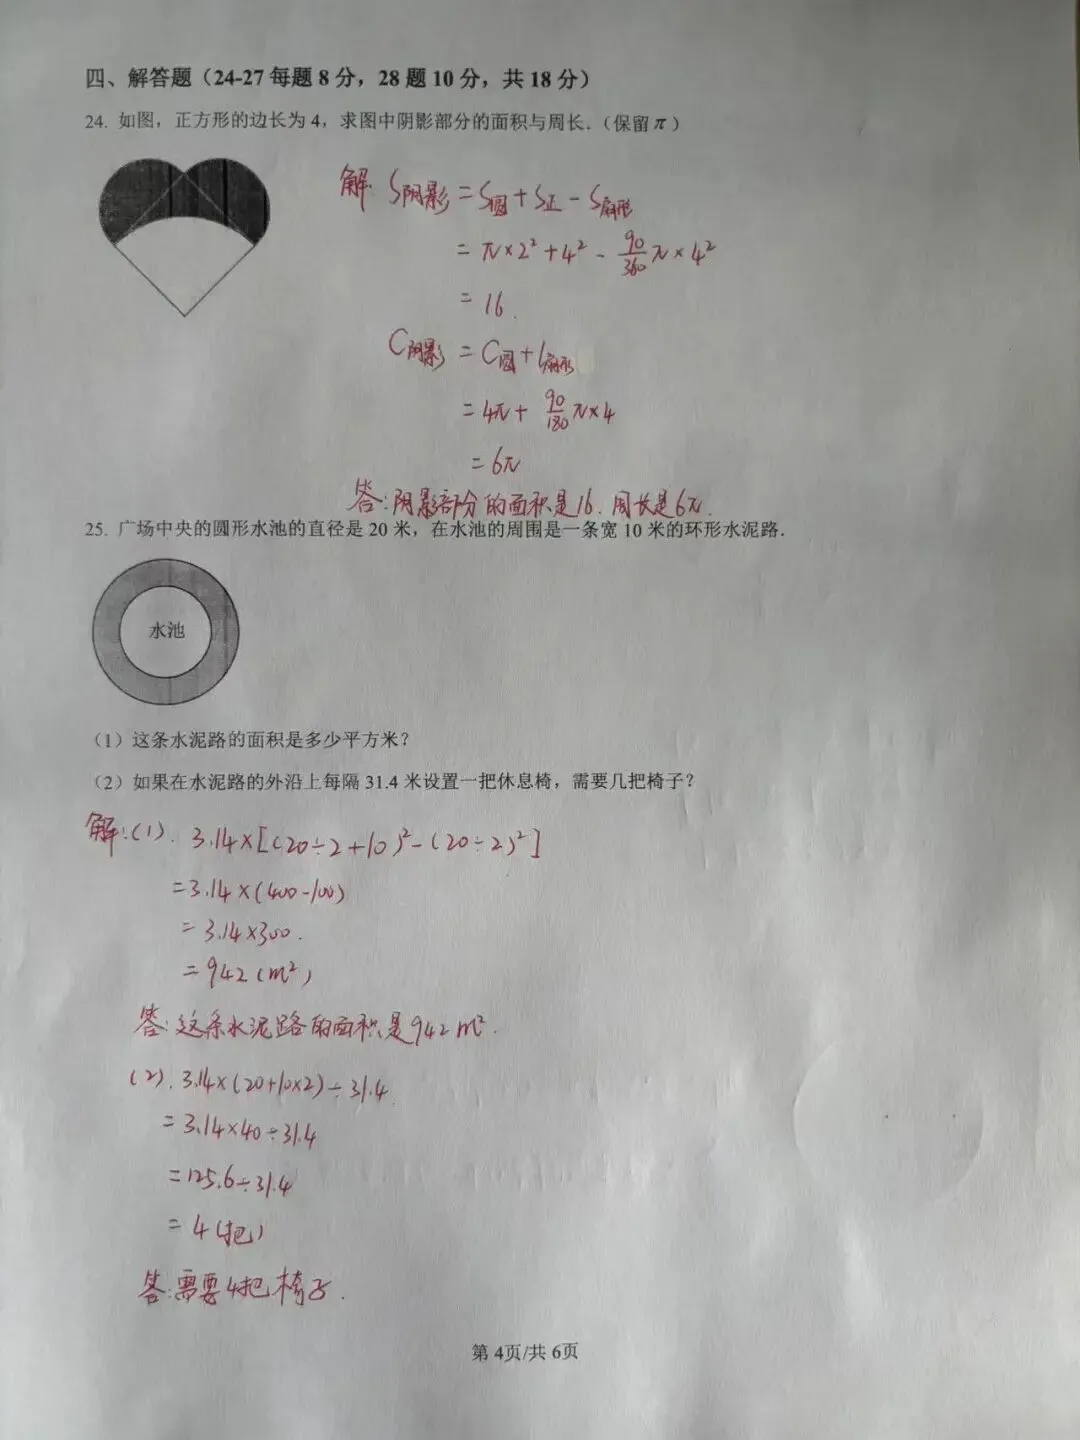 四、解答题（24-27 每题 8 分，28 题 10 分，共 18 分）
24. 如图，正方形的边长为 4，求图中阴影部分的面积与周长．（保留π）
解: S阴影 = S圆 + S正 - S扇形
= π×2² + 4² - 90/360 π×4²
= 16.
C阴影 = C圆 + l扇形
= 4π + 90/180 π×4
= 6π
答: 阴影部分的面积是16. 周长是6π.
25. 广场中央的圆形水池的直径是 20 米，在水池的周围是一条宽 10 米的环形水泥路．
水池
（1）这条水泥路的面积是多少平方米？
（2）如果在水泥路的外沿上每隔 31.4 米设置一把休息椅，需要几把椅子？
解:(1). 3.14×[(20÷2+10)²-(20÷2)²]
=3.14×(400-100)
= 3.14×300.
= 942 (m²)
答: 这条水泥路的面积是942 m².
(2). 3.14×(20+10×2)÷31.4.
= 3.14×40÷31.4
=125.6÷31.4
= 4 (把)
答: 需要4把椅子.
第 4页/共 6页